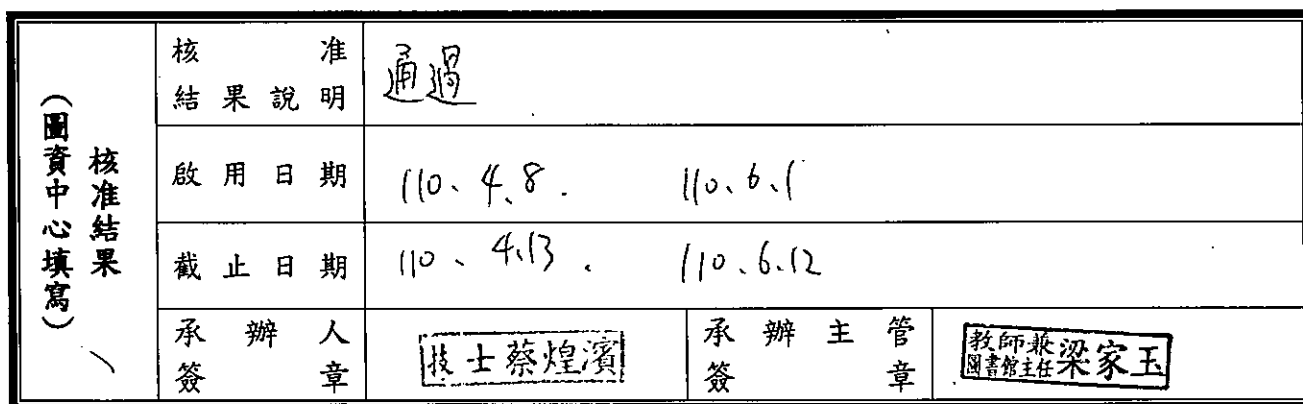 核准結果
(圖資中心填寫)
核准
結果說明
通過
啟用日期
110、4、8.
110、6、1
截止日期
110、4、13.
110、6、12
承辦人
簽章
技士蔡煌濱
承辦主管
簽章
教師兼
圖書館主任
梁家玉